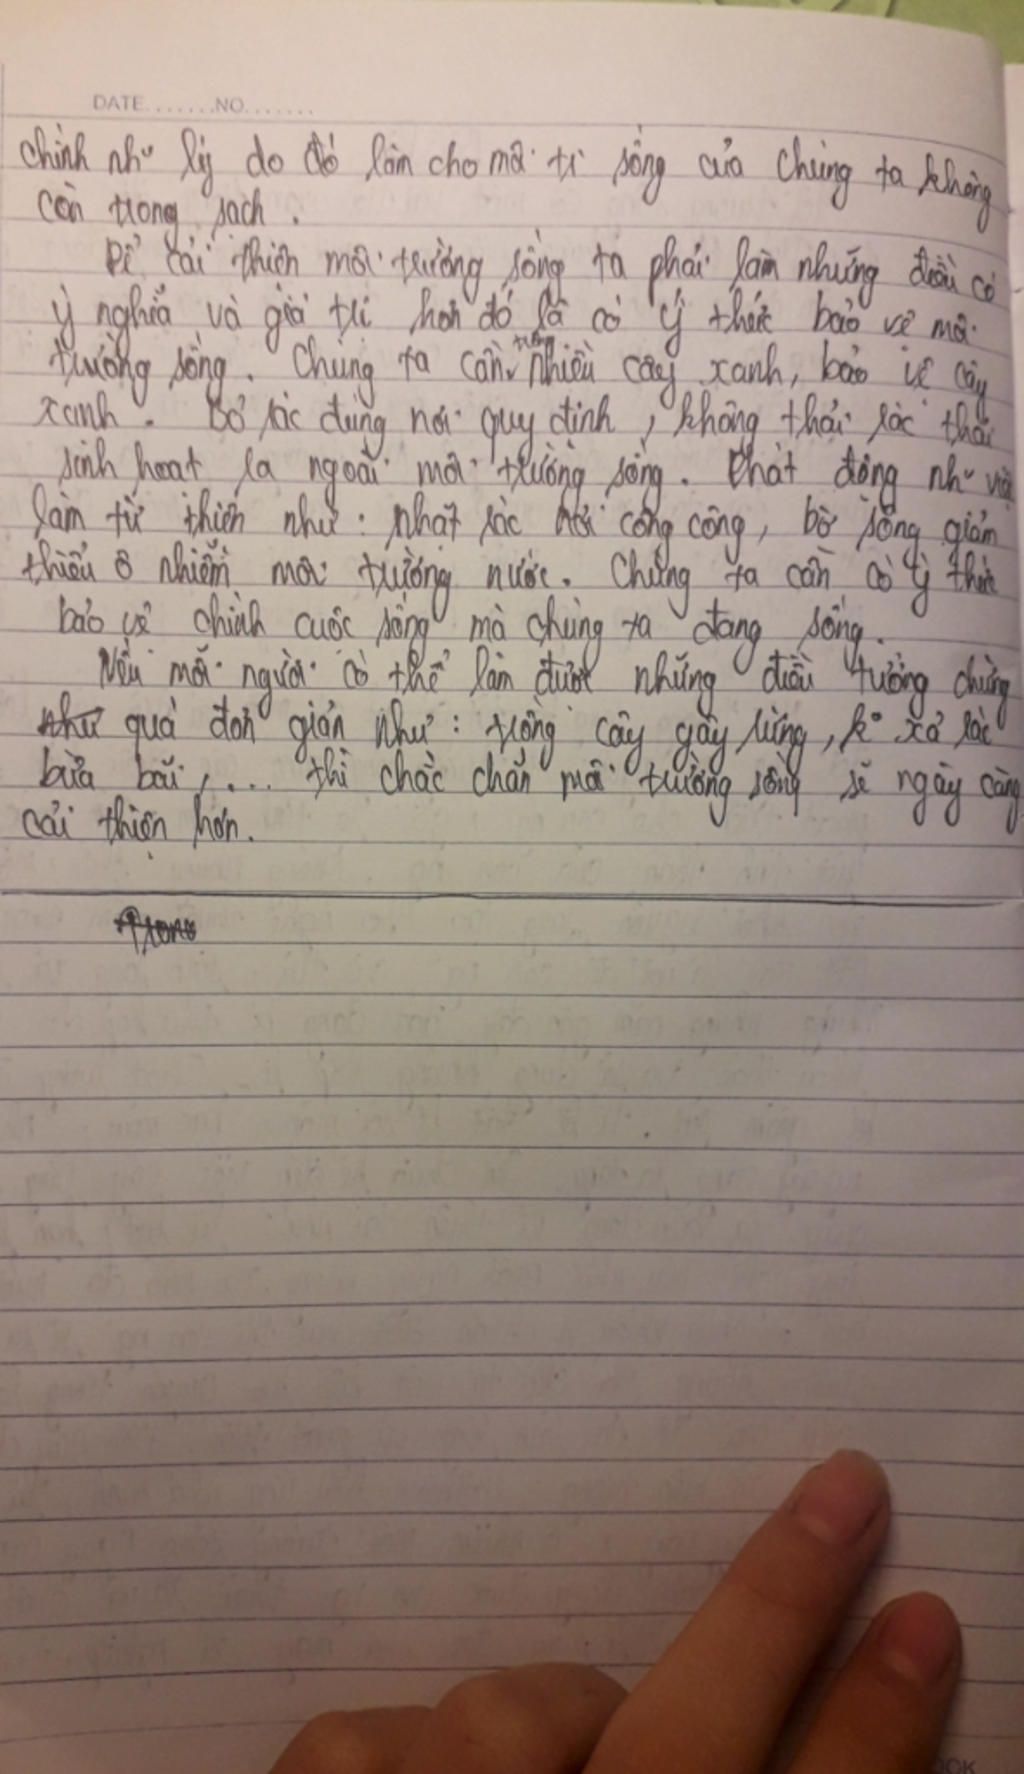 DATE.......NO.......
chính nh~ lý do đó làm cho môi tr sống của chúng ta không
còn trong sạch.
Để cải thiện môi trường sống ta phải làm những điều có
ý nghĩa và giá trị hơn đó là có ý thức bảo vệ môi
trường sống. Chúng ta cần trồng nhiều cây xanh, bảo vệ cây
xanh. Bỏ rác đúng nơi quy định, không thải rác thải
sinh hoạt ra ngoài môi trường sống. Phát động nh~ việc
làm từ thiện như: nhặt rác nơi công cộng, bờ sông giảm
thiểu ô nhiễm môi trường nước. Chúng ta cần có ý thức
bảo vệ chính cuộc sống mà chúng ta đang sống.
Nếu mỗi người có thể làm được những điều tưởng chừng
như quá đơn giản như: trồng cây gây rừng, k° xả rác
bừa bãi,.... thì chắc chắn môi trường sống sẽ ngày càng
cải thiện hơn.